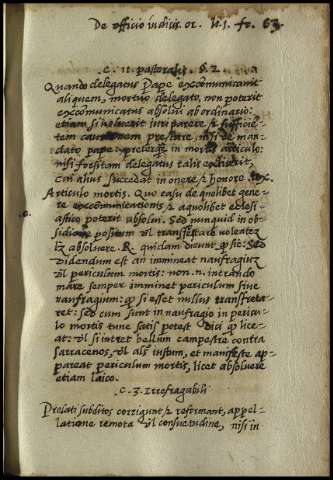 De officio iudicis or. N. 1. fo. 63.
C. 11. pastoralis. §. 2.
Quando delegatus Pape excõmunicauit
aliquem, mortuo delegato, non poterit
excõmunicatus absolui ab ordinario:
etiam si uoluerit iuri parere & sufficiẽ-
tem cautionem prestare, nisi de man-
dato pape: preterq̃ in mortis articulo:
nisi forsitam delegatus talis extiterit,
cui alius succedat in onere & honore.
Articulo mortis. Quo casu de quolibet gene-
re excommunicationis & a quolibet eclesi-
astico poterit absolui. Sed nunquid in ob-
sidione positum ul transfretare uolentẽ
absoluere. R. quidam dicunt q̃ sic: Sed
uidendum est an immineat naufragiũ
ul periculum mortis: non. n. intrando
mare semper imminet periculum siue
naufragium: q̃ si esset nullus transfreta-
ret: sed cum sunt in naufragio in pericu-
lo mortis tunc satis potest dici q̃ lice-
at: ul si intret bellum campestre contra
sarracenos, ul als iustum, et manifeste ap-
pareat periculum mortis, licet absoluere
etiam laico.
C. 3. Irrefragabili
Prelati subditos corrigunt & reformant, appel-
latione remota ul consuetudine, nisi in